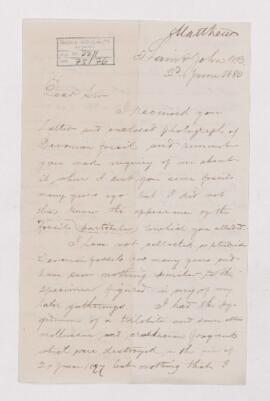 J Matthew
Saint John N.B.
2nd June 1880
Dear Sir
I received your
letter and enclosed photograph of
Devonian fossil and remember
you made inquiry of me about
it, when I sent you some fossils
many years ago but I did not
then know the appearance of the
fossils particular to which you alluded.
I have not collected or studied
Devonian fossils for many years and
have seen nothing similar to the
specimen figured in any of my
later gatherings. I had the
of a trilobite and some other
molluscan, and crustacean fragments
which were destroyed in the fire of
20 June 1877 but nothing that I